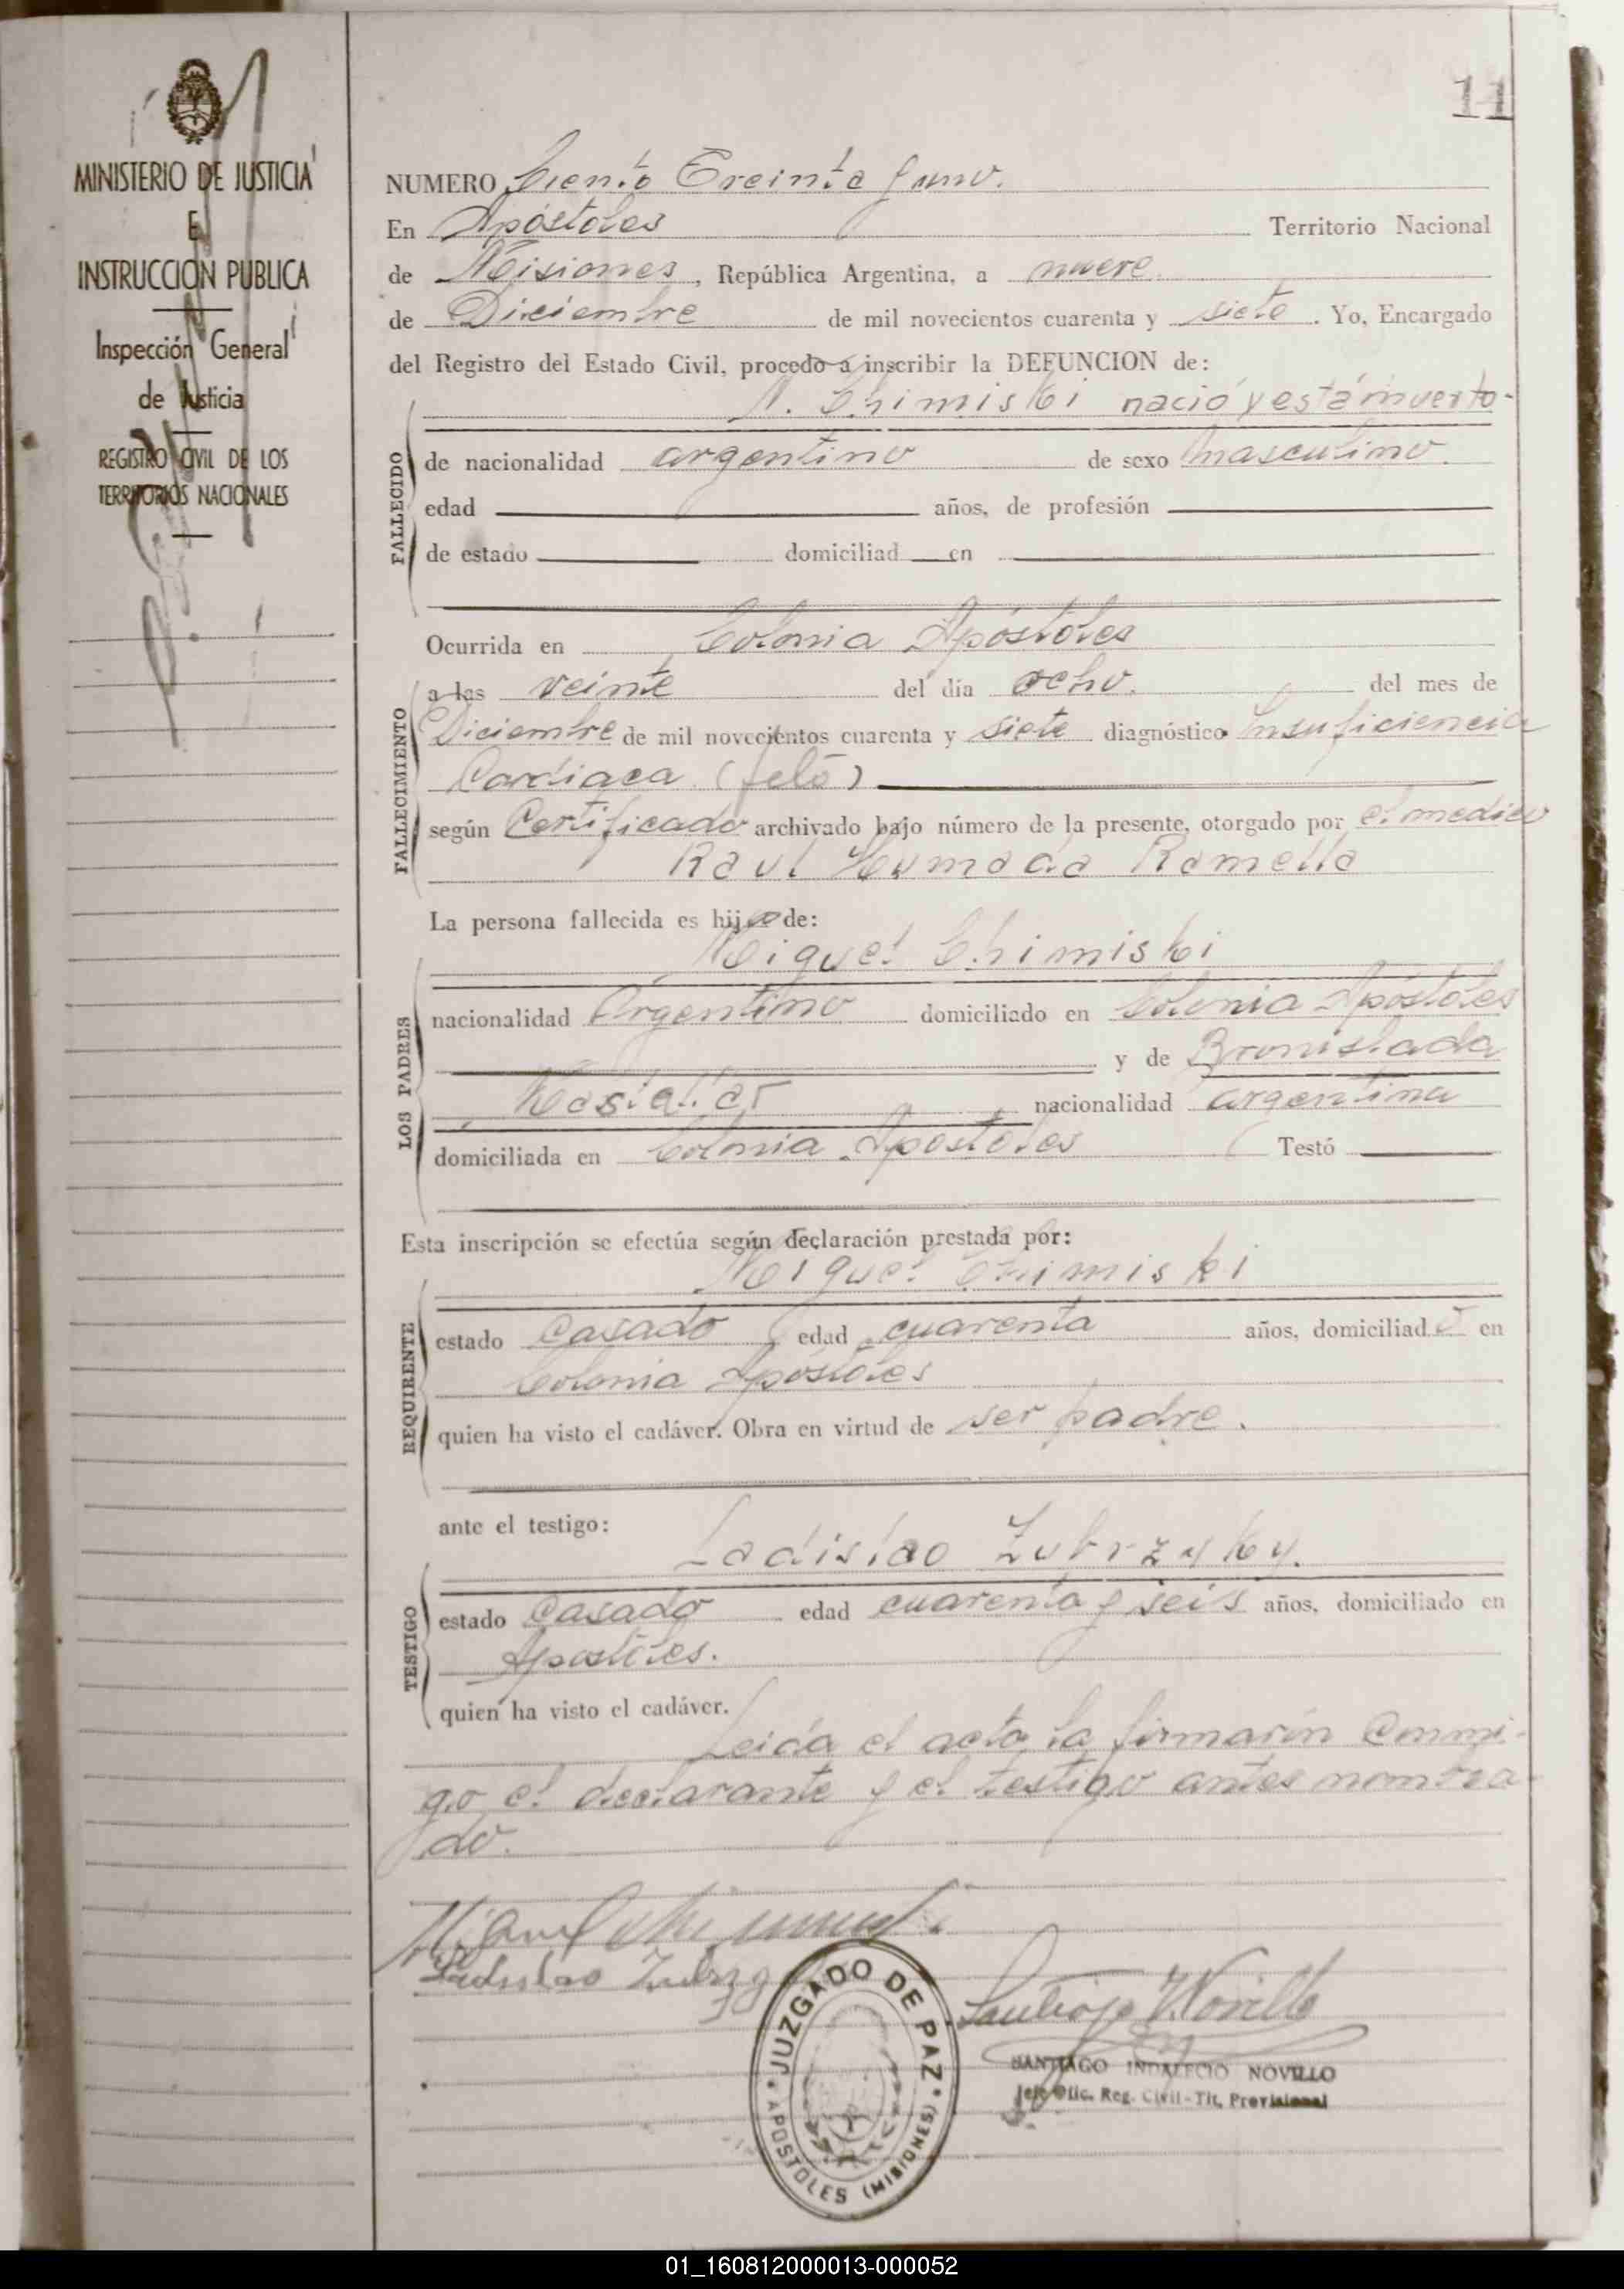 11
MINISTERIO DE JUSTICIA
E
INSTRUCCION PUBLICA
Inspección General
de Justicia
REGISTRO CIVIL DE LOS
TERRITORIOS NACIONALES
NUMERO Ciento Treinta y uno.
En Apóstoles Territorio Nacional
de Misiones, República Argentina, a nueve
de Diciembre de mil novecientos cuarenta y siete. Yo, Encargado
del Registro del Estado Civil, procedo a inscribir la DEFUNCION de:
N. Chimiski nació y está muerto-
FALLECIDO
de nacionalidad argentino de sexo masculino.
edad años, de profesión
de estado domiciliad en
Ocurrida en Colonia Apóstoles
a las veinte del día ocho. del mes de
FALLECIMIENTO
Diciembre de mil novecientos cuarenta y siete diagnóstico Insuficiencia
Cardiaca (feto)
según Certificado archivado bajo número de la presente, otorgado por el medico
Raul Ramella
La persona fallecida es hijo de:
Miguel Chimiski
LOS PADRES
nacionalidad Argentino domiciliado en Colonia Apóstoles
y de Bronislada
nacionalidad argentina
domiciliada en Colonia Apóstoles Testó
Esta inscripción se efectúa según declaración prestada por:
Miguel Chimiski
REQUIRENTE
estado Casado edad cuarenta años, domiciliado en
Colonia Apóstoles
quien ha visto el cadáver. Obra en virtud de ser padre.
ante el testigo:
Ladislao Zubrzyky.
TESTIGO
estado Casado edad cuarenta y seis años, domiciliado en
Apóstoles.
quien ha visto el cadáver.
Leida el acta la firmarón Conmi-
go el declarante y el testigo antes nombra-
do.
Miguel Chimiski
Ladislao
JUZGADO DE PAZ
APOSTOLES (MISIONES)
Santiago I. Novillo
SANTIAGO INDALECIO NOVILLO
Jefe Ofic. Reg. Civil-Tit. Provisional
01_160812000013-000052